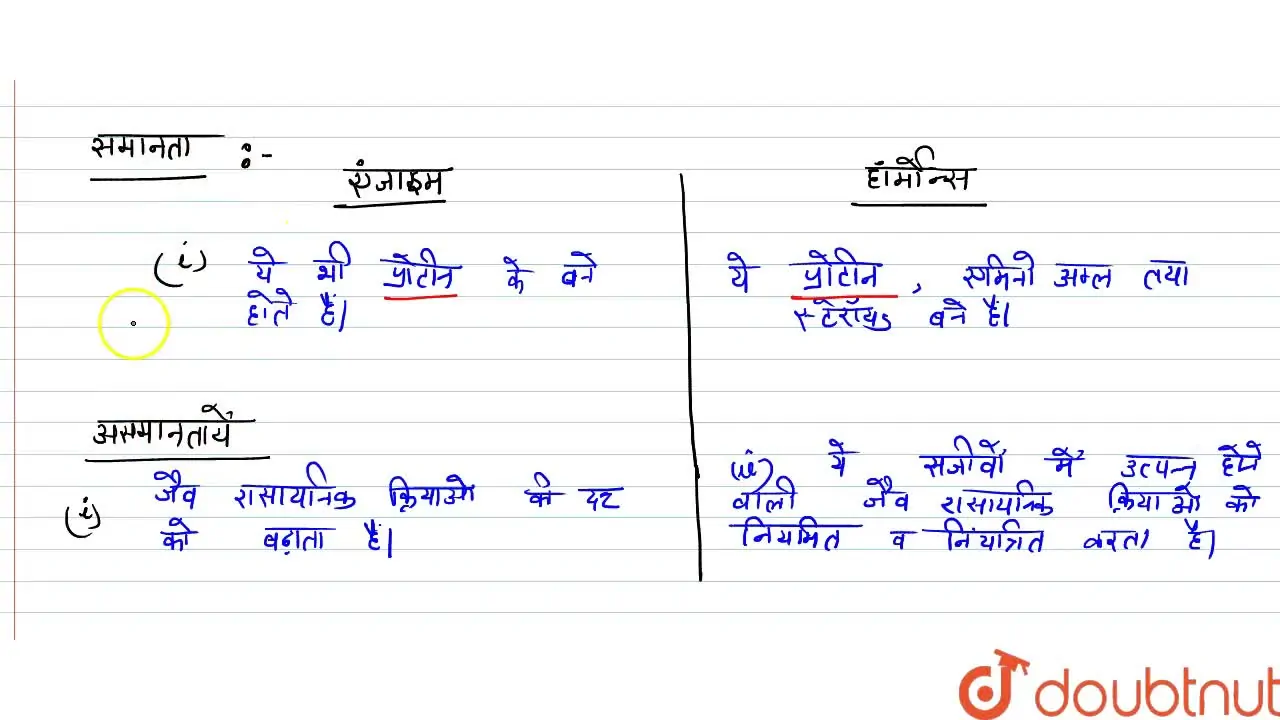 समानता :-
एंजाइम
हॉर्मोन्स
(i) ये भी प्रोटीन के बने
होते हैं।
ये प्रोटीन, एमिनो अम्ल तथा
स्टेरॉयड बने हैं।
असमानतायें
(i) जैव रासायनिक क्रियाओं की दर
को बढ़ाता है।
(ii) ये सजीवों में उत्पन्न होने
वाली जैव रासायनिक क्रियाओं को
नियमित व नियंत्रित करता है।
doubtnut